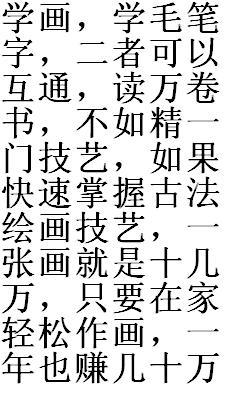 学画，学毛笔
字，二者可以
互通，读万卷
书，不如精一
门技艺，如果
快速掌握古法
绘画技艺，一
张画就是十几
万，只要在家
轻松作画，一
年也赚几十万